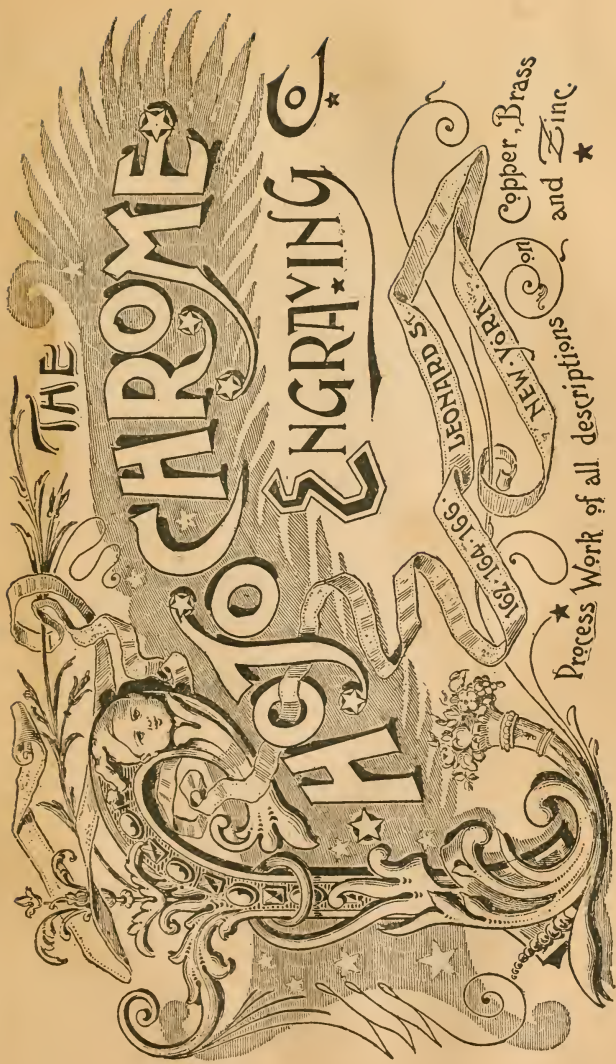 THE
PHOTO CHROME
ENGRAVING Co
162·164·166 LEONARD ST.
NEW·YORK.
Process Work of all descriptions on Copper, Brass
and Zinc.